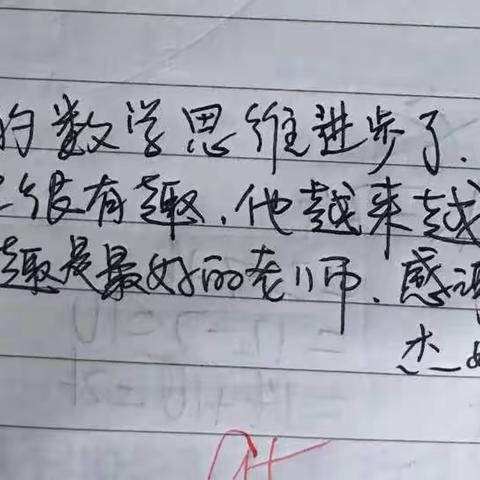 的数学思维进步了.
很有趣.他越来越
趣是最好的老师.感
杰